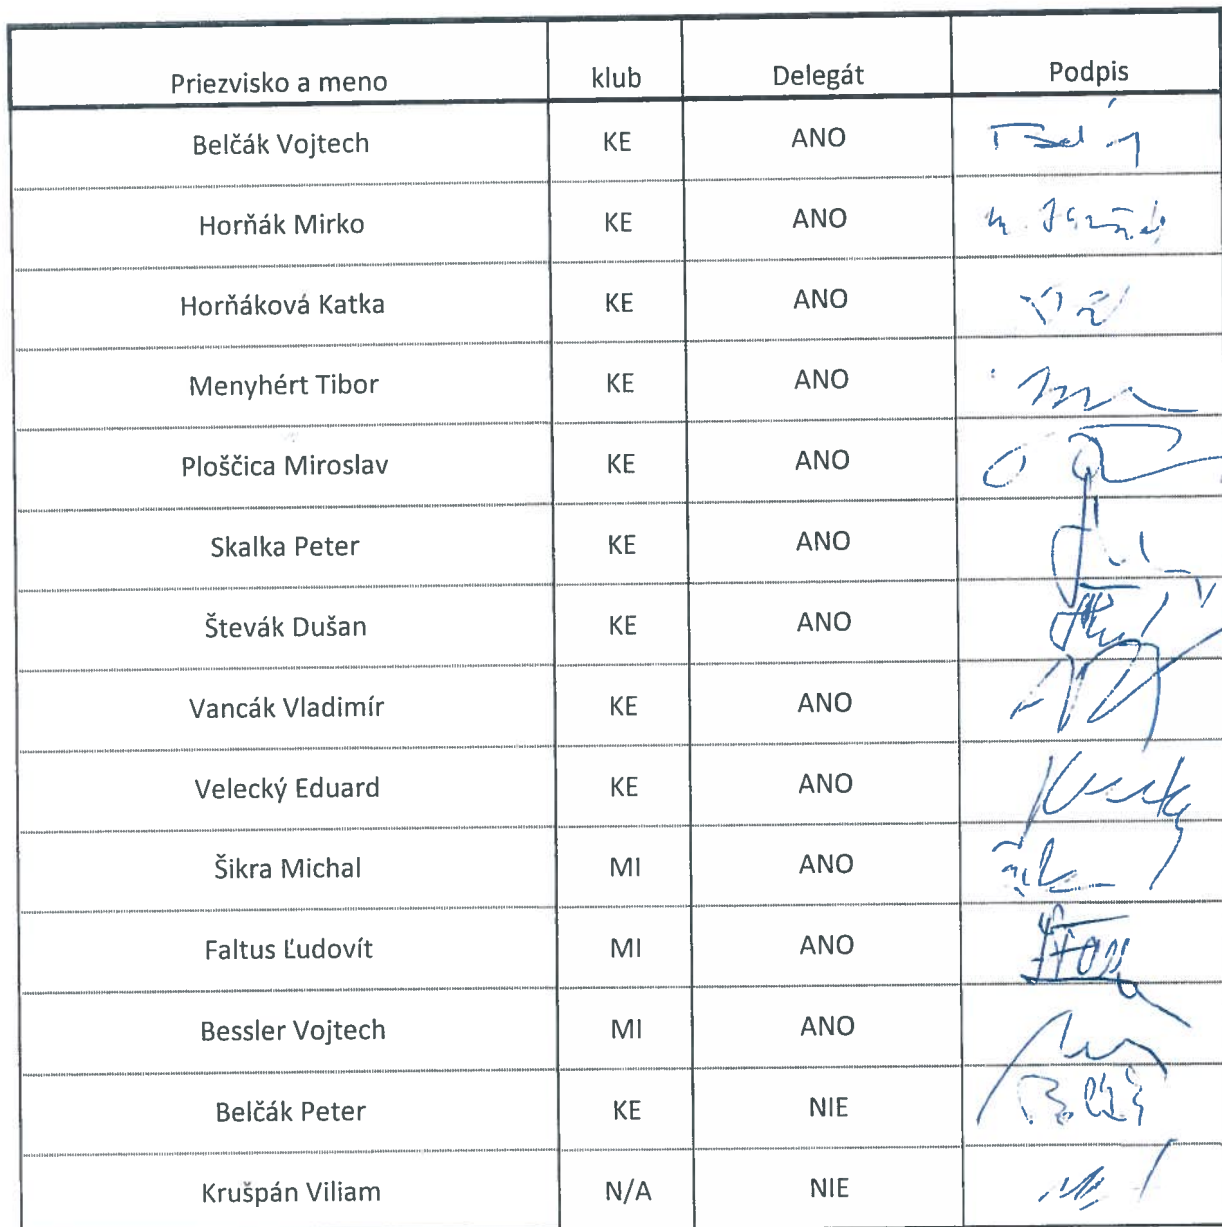 Priezvisko a meno klub Delegát Podpis
Belčák Vojtech KE ANO
Horňák Mirko KE ANO
Horňáková Katka KE ANO
Menyhért Tibor KE ANO
Ploščica Miroslav KE ANO
Skalka Peter KE ANO
Števák Dušan KE ANO
Vancák Vladimír KE ANO
Velecký Eduard KE ANO
Šikra Michal MI ANO
Faltus Ľudovít MI ANO
Bessler Vojtech MI ANO
Belčák Peter KE NIE
Krušpán Viliam N/A NIE